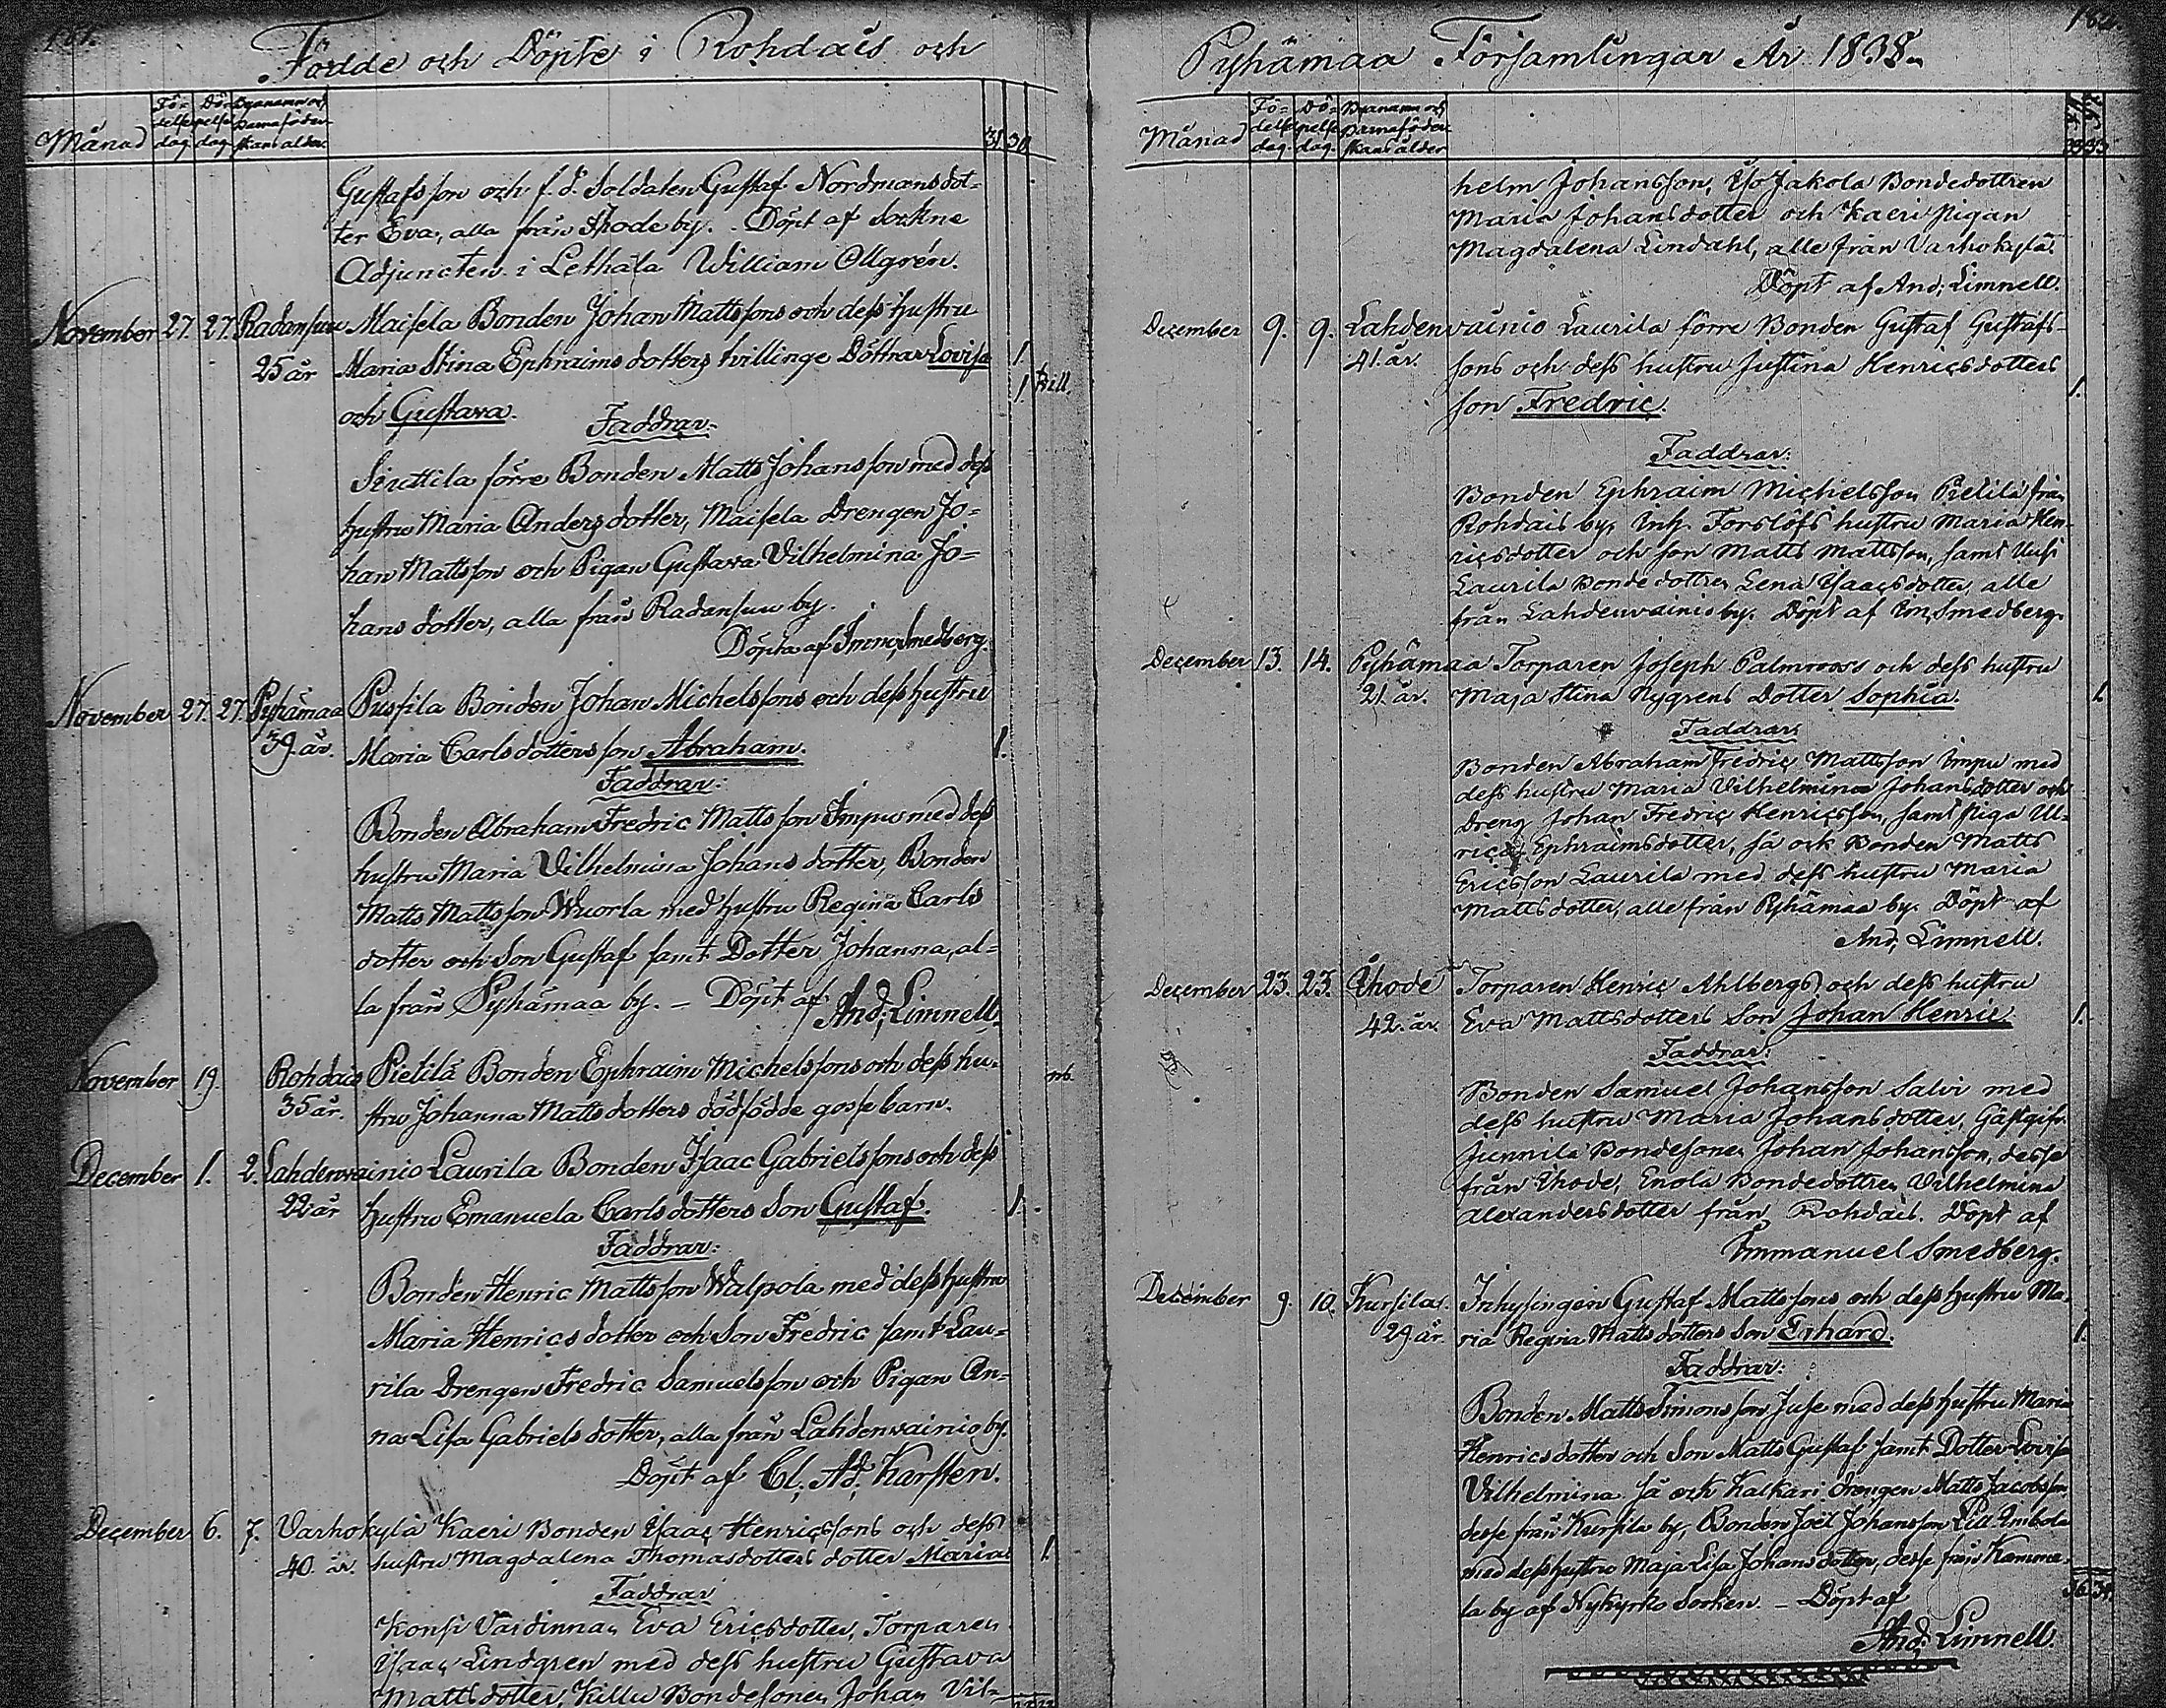 181.
Födde och Döpte i Rohdais och
Månad
Fö-
delse
dag.
Dö-
pelse
dag.
Byanamn och
Barnaföder-
skans ålder.
31 30
Gustafsson och f. d. Soldaten Gustaf Nordmans dot-
ter Eva, alla från Ihode by. Döpt af Sockne
Adjuncten i Lethala William Ollgrén.
November 27. 27. Radansuu Maisela Bonden Johan Mattssons och dess hustru
25 år Maria Stina Ephraimsdotters tvillinge Döttrar Lovisa 1.
och Gustava. 1. tvill.
Faddrar:
Siuttila förre Bonden Matts Johansson med dess
hustru Maria Andersdotter, Maisela Drengen Jo-
han Mattsson och Pigan Gustava Vilhelmina Jo-
hans dotter, alla från Radansuu by.
Döpta af Imm. Smedberg.
November 27. 27. Pyhämaa Pussila Bonden Johan Michelssons och dess hustru
39 år. Maria Carlsdotters son Abraham. 1.
Faddrar:
Bonden Abraham Fredric Mattsson Impu med dess
hustru Maria Vilhelmina Johans dotter, Bonden
Matts Mattsson Wuorla med hustru Regina Carls
dotter och Son Gustaf samt Dotter Johanna, al-
la från Pyhämaa by. – Döpt af And; Limnell.
November 19. Rohdais Pietilä Bonden Ephraim Michelssons och dess hu-
35 år. stru Johanna Mattsdotters dödfödde gossebarn.
December 1. 2. Lahdenvainio Laurila Bonden Isaac Gabrielssons och dess
22 år hustru Emanuela Carlsdotters Son Gustaf. 1.
Faddrar:
Bonden Henric Mattsson Walpola med dess hustru
Maria Henricsdotter och Son Fredric samt Lau-
rila Drengen Fredric Samuelsson och Pigan An-
na Lisa Gabriels dotter, alla från Lahdenvainio by.
Döpt af Cl; Ad; Karsten.
December 6. 7. Varhokylä Kaeri Bonden Isaac Henricssons och dess
40. år. hustru Magdalena Thomasdotters dotter Maria 1.
Faddrar
Konsi Värdinnan Eva Ericsdotter, Torparen
Isaac Lindgren med dess hustru Gustava
Mattsdotter, Killu Bondesonen Johan Vil-
Pyhämaa Församlingar År 1838.
Månad
Fö-
delse
dag.
Dö-
pelse
dag.
Byanamn och
Barnaföder-
skans ålder
helm Johansson, Yso Jakola Bondedottren
Maria Johansdotter och Kaeri pigan
Magdalena Lindahl, alle från Varhokylä.
Döpt af And; Limnell.
December 9. 9. Lahdenvainio Laurila förre Bonden Gustaf Gustafs-
41. år. sons och dess hustru Justina Henricsdotters
son Fredric. 1.
Faddrar:
Bonden Ephraim Michelsson Pietilä från
Rohdais by, Inh. Forslöfs hustru Maria Hen-
ricsdotter och son Matts Mattsson, samt Uusi
Laurila Bondedottren Lena Isaacsdotter, alle
från Lahdenvainio by. Döpt af Im. Smedberg.
December 13. 14. Pyhämaa Torparen Joseph Palmroos och dess hustru
21. år. Maja Stina Nygrens Dotter Sophia. 1.
Faddrar
Bonden Abraham Fredric Mattsson Impu med
dess hustru Maria Vilhelmina Johansdotter och
Dreng Johan Fredric Henricsson, samt Piga Ul-
rica Ephraimsdotter, så ock Bonden Matts
Ericsson Laurila med dess hustru Maria
Mattsdotter, alle från Pyhämaa by. Döpt af
And; Limnell.
December 23. 23. Ihode Torparen Henric Ahlbergs och dess hustru
42. år. Eva Mattsdotters Son Johan Henric. 1.
Faddrar:
Bonden Samuel Johansson Salvi med
dess hustru Maria Johansdotter, Gästgifv.
Junnila Bondesonen Johan Johansson, desse
från Ihode, Enola Bondedottren Vilhelmina
Alexandersdotter från Rohdais. Döpt af
Immanuel Smedberg.
December 9. 10. Kursila Inhysingen Gustaf Mattssons och dess hustru Ma-
29 år. ria Regina Mattsdotters Son Erhard. 1.
Faddrar:
Bonden Matts Simonsson Juse med dess hustru Maria
Henricsdotter och Son Matts Gustaf samt Dotter Lovisa
Vilhelmina så och Kalkari drengen Matts Jacobsson
desse från Kursila by, Bonden Joël Johansson
med dess hustru Maja Lisa Johansdotter, desse från Kamme-
la by af Nykyrko Socken. – Döpt af
And; Limnell.